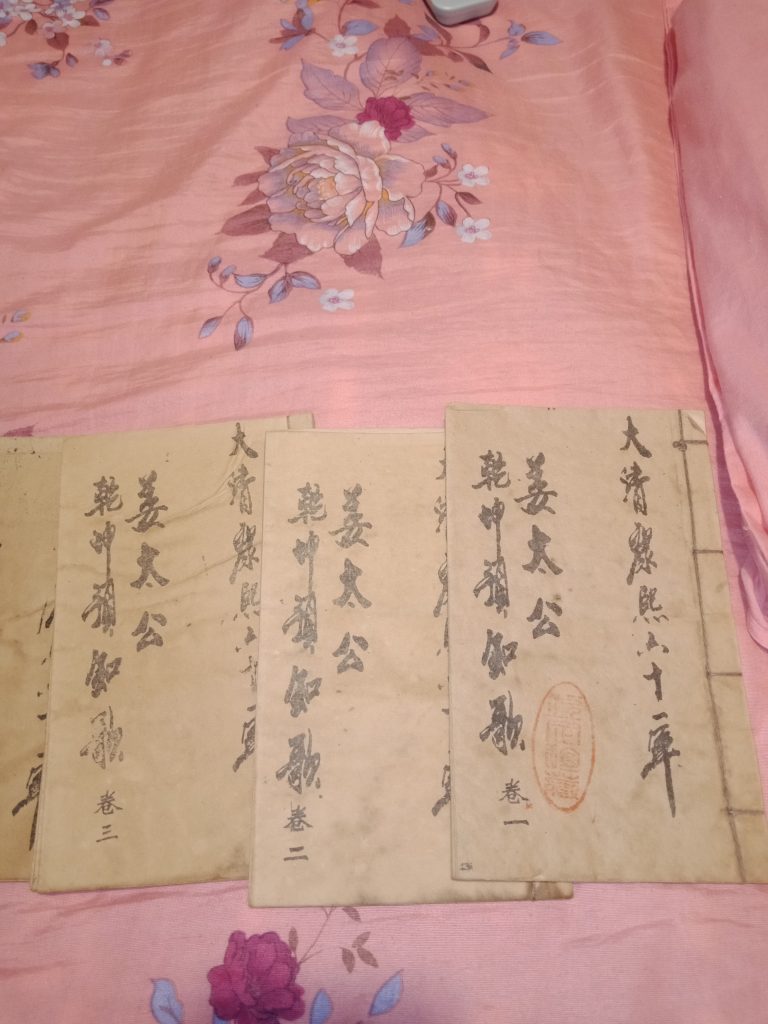 大清康熙六十一年
姜太公
乾坤預知歌
卷一
姜太公
乾坤預知歌
卷二
大清康熙六十
姜太公
乾坤預知歌
卷三